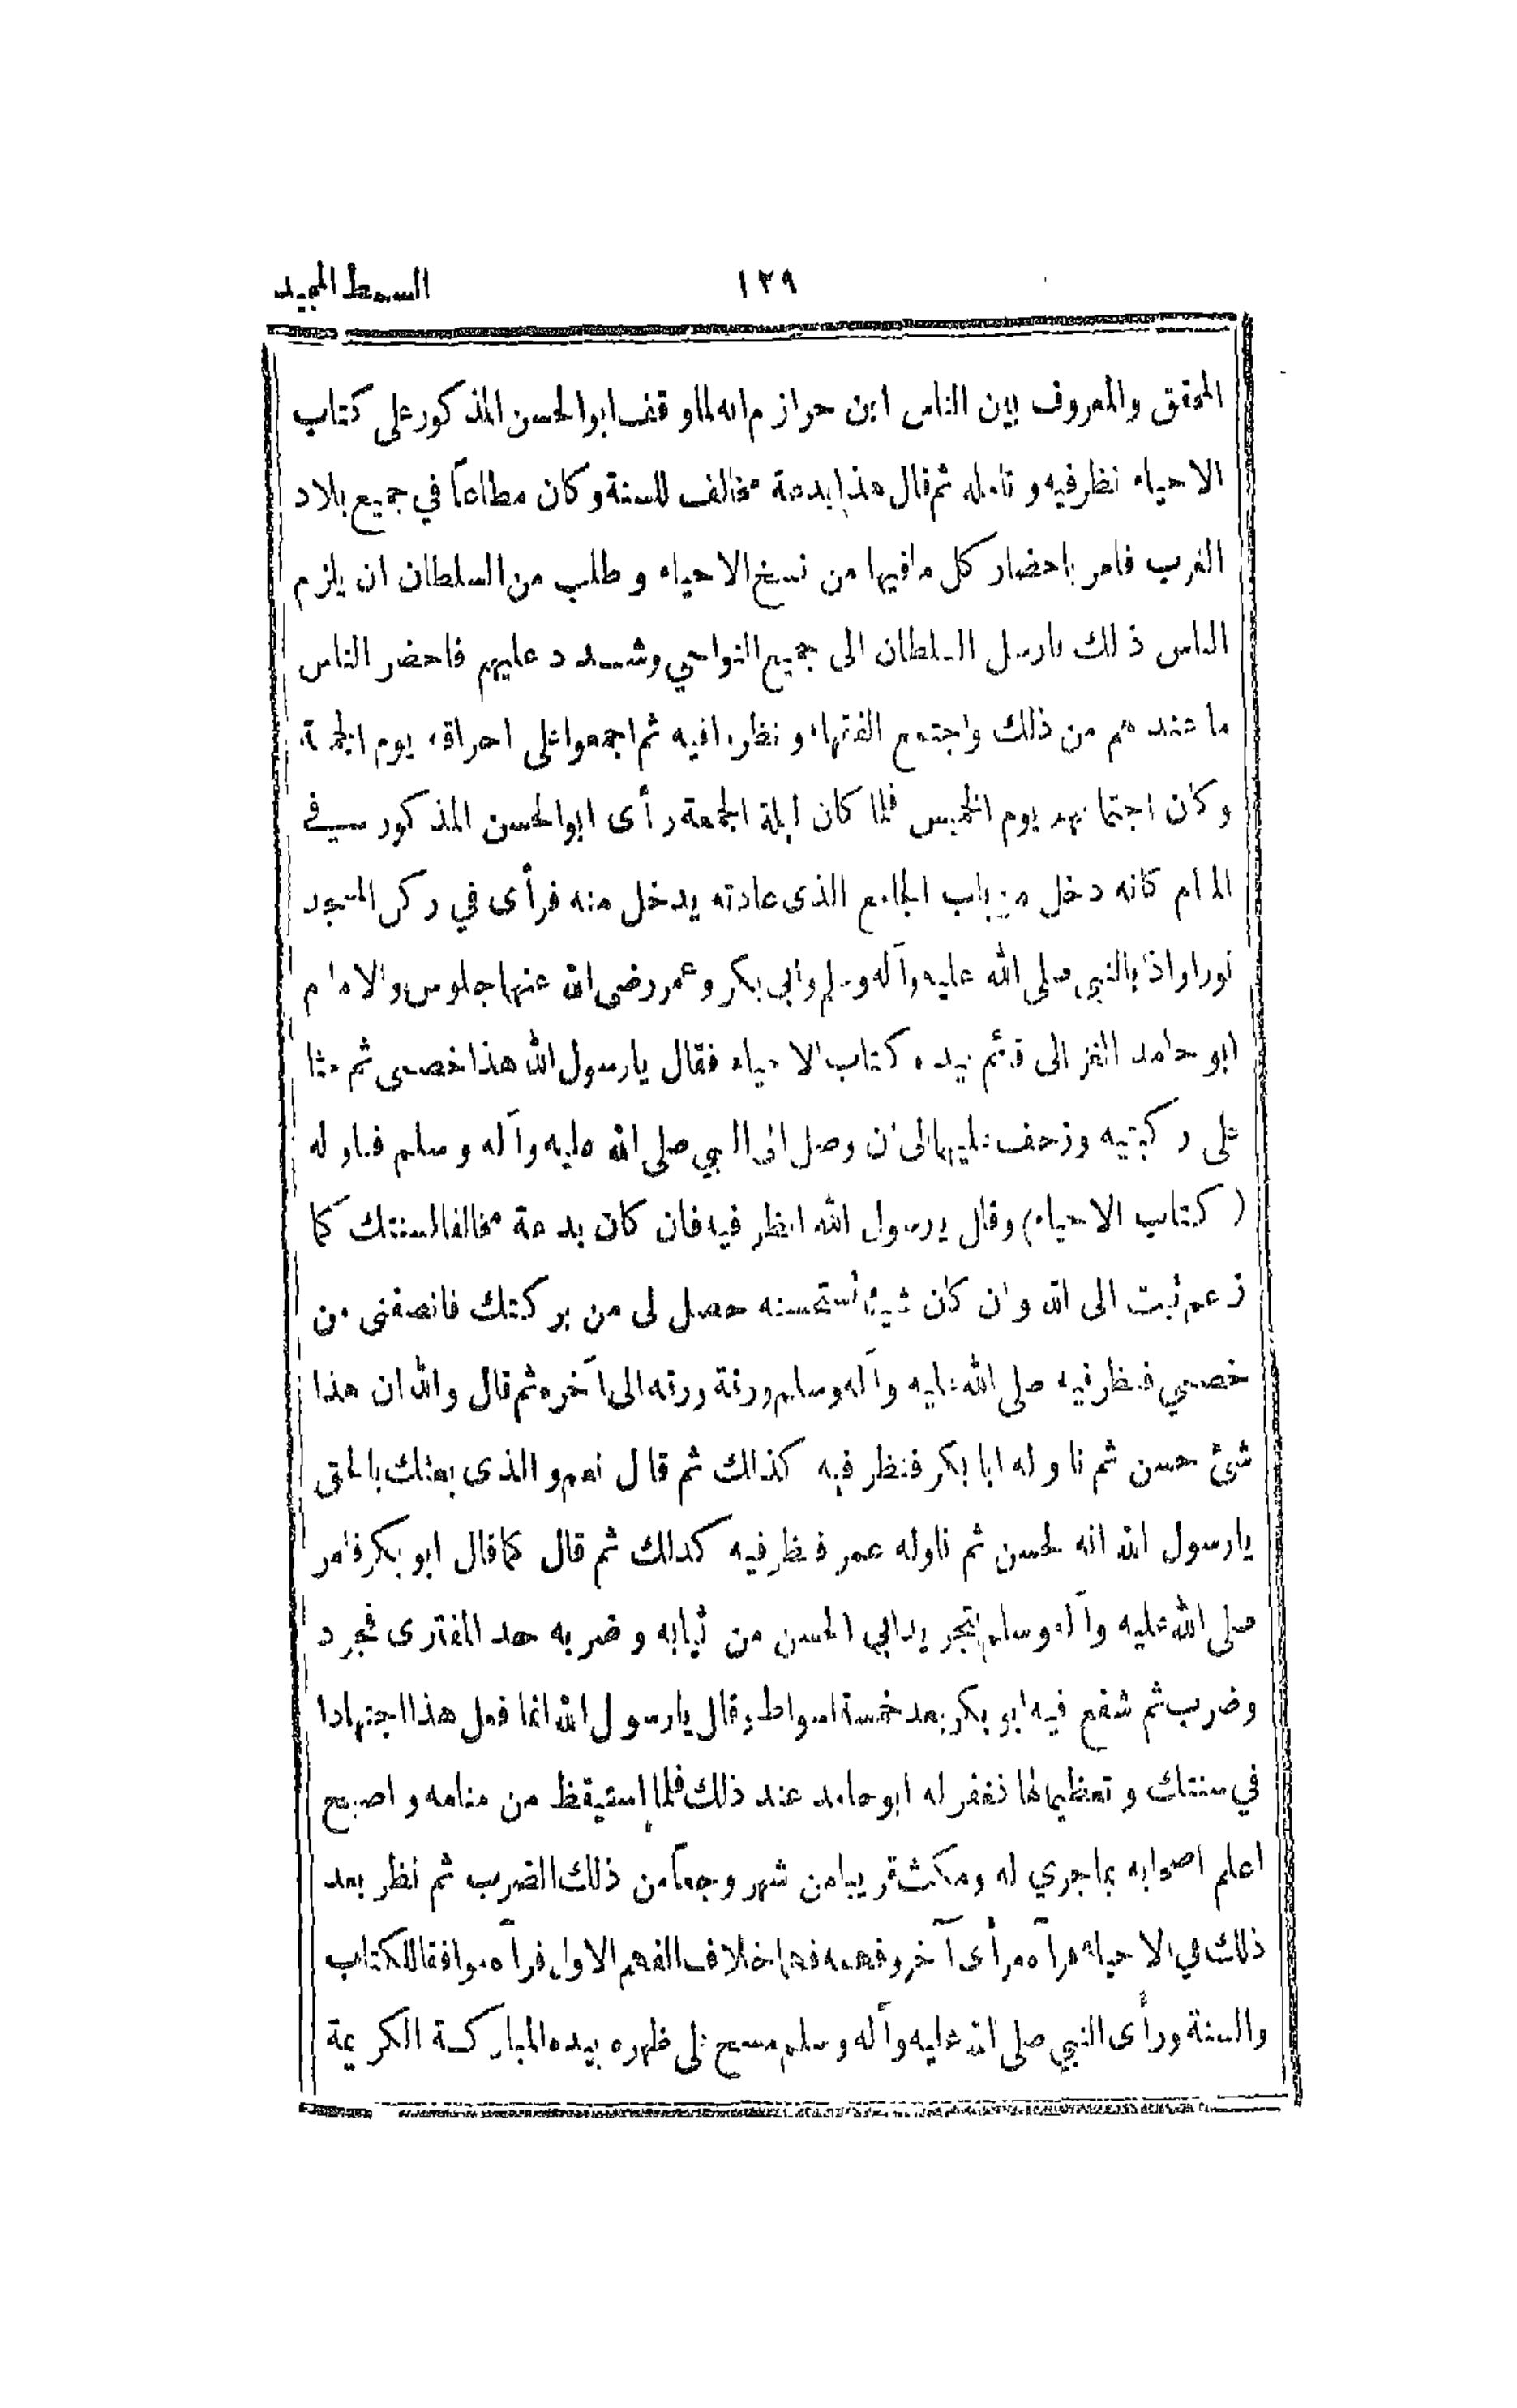 السمط المجيد
١٢٩
المحقق والمعروف بين الناس ابن حرازم انه لما وقف ابوالحسن المذكور على كتاب
الاحياء نظر فيه و تامله ثم قال هذا بدعة مخالف للسنة وكان مطاعاً في جميع بلاد
الغرب فامر باحضار كل مافيها من نسخ الاحياء و طلب من السلطان ان يلزم
الناس ذلك فارسل السلطان الى جميع النواحي وشدد عليهم فاحضر الناس
ما عندهم من ذلك واجتمع الفقهاء و نظروا فيه ثم اجمعوا على احراقه يوم الجمعة
وكان اجتماعهم يوم الخميس فلما كان ليلة الجمعة رأى ابوالحسن المذكور في
المنام كانه دخل من باب الجامع الذى عادته يدخل منه فرأى في ركن المسجد
نورا واذا بالنبي صلى الله عليه وآله وسلم وابي بكر وعمر رضى الله عنهما جلوس والامام
ابو حامد الغزالى قائم بيده كتاب الاحياء فقال يارسول الله هذا خصمى ثم جثا
على ركبتيه وزحف عليهما الى ان وصل الى النبي صلى الله عليه وآله وسلم فناوله
(كتاب الاحياء) وقال يارسول الله انظر فيه فان كان بدعة مخالفا لسنتك كما
زعم تبت الى الله وان كان شيئا تستحسنه حصل لى من بركتك فانصفنى من
خصمي فنظر فيه صلى الله عليه وآله وسلم ورقة ورقة الى آخره ثم قال والله ان هذا
شئ حسن ثم ناوله ابا بكر فنظر فيه كذالك ثم قال نعم والذى بعثك بالحق
يارسول الله انه لحسن ثم ناوله عمر فنظر فيه كذلك ثم قال كما قال ابو بكر فامر
صلى الله عليه وآله وسلم بتجريد ابي الحسن من ثيابه وضربه حد المفترى فجرد
وضرب ثم شفع فيه ابو بكر بعد خمسة اسواط وقال يارسول الله انما فعل هذا اجتهادا
في سنتك و تعظيما لها فغفر له ابوحامد عند ذلك فلما استيقظ من منامه واصبح
اعلم اصحابه بماجري له ومكث قريبا من شهر وجعاً من ذلك الضرب ثم نظر بعد
ذلك في الاحياء فرآه مرأى آخر وفهمه فهما خلاف الفهم الاول فرآه موافقا للكتاب
والسنة ورأى النبي صلى الله عليه وآله وسلم مسح على ظهره بيده المباركة الكريمة